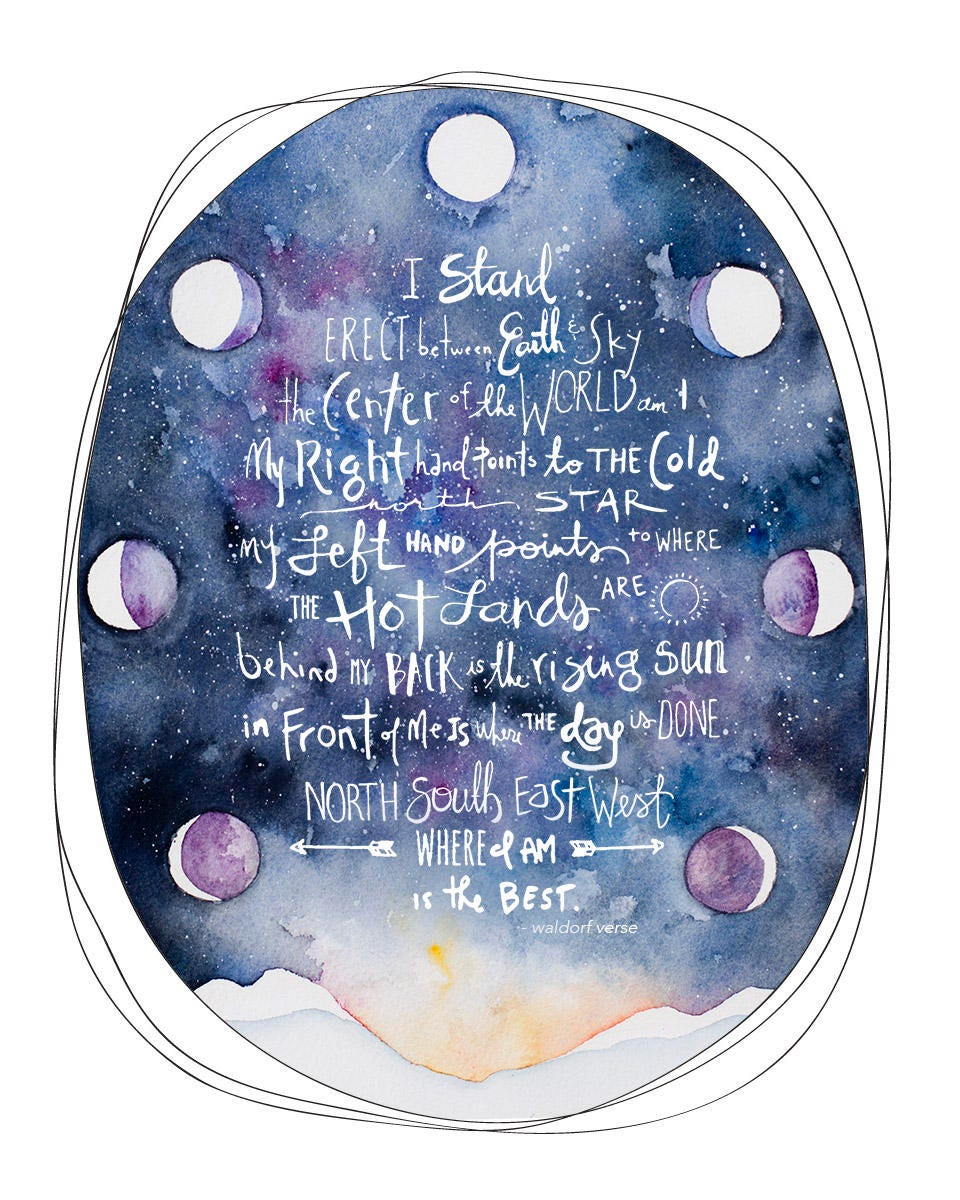 I Stand
ERECT between Earth & Sky
the Center of the WORLD am I
My Right hand Points to THE Cold
north STAR
my Left HAND points to WHERE
THE HOT Lands ARE
behind MY BACK is the rising sun
in Front of Me Is where THE day is DONE.
NORTH South EAST West
WHERE I AM
is the BEST.
- waldorf verse